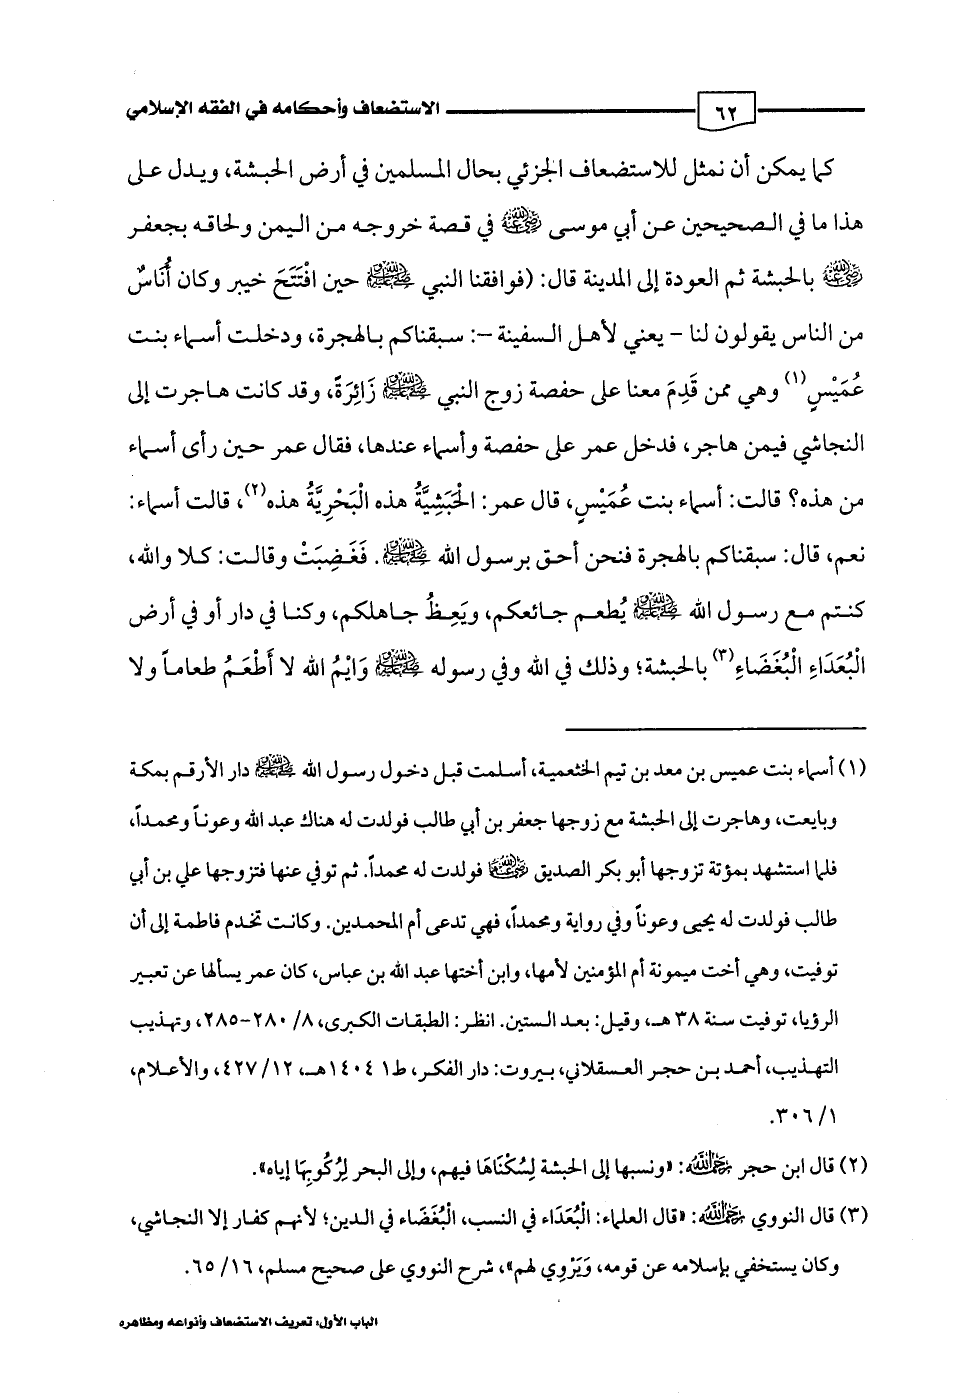 الاستضعاف وأحكامه في الفقه الإسلامي
٦٢
كما يمكن أن نمثل للاستضعاف الجزئي بحال المسلمين في أرض الحبشة، ويدل على
هذا ما في الصحيحين عن أبي موسى رضي الله عنه في قصة خروجه من اليمن ولحاقه بجعفر
رضي الله عنه بالحبشة ثم العودة إلى المدينة قال: (فوافقنا النبي ﷺ حين افْتَتَحَ خيبر وكان أُنَاسٌ
من الناس يقولون لنا - يعني لأهل السفينة -: سبقناكم بالهجرة، ودخلت أسماء بنت
عُمَيْسٍ(١) وهي ممن قَدِمَ معنا على حفصة زوج النبي ﷺ زَائِرَةً، وقد كانت هاجرت إلى
النجاشي فيمن هاجر، فدخل عمر على حفصة وأسماء عندها، فقال عمر حين رأى أسماء
من هذه؟ قالت: أسماء بنت عُمَيْسٍ، قال عمر: الْحَبَشِيَّةُ هذه الْبَحْرِيَّةُ هذه(٢)، قالت أسماء:
نعم، قال: سبقناكم بالهجرة فنحن أحق برسول الله ﷺ. فَغَضِبَتْ وقالت: كلا والله،
كنتم مع رسول الله ﷺ يُطعم جائعكم، ويَعِظُ جاهلكم، وكنا في دار أو في أرض
الْبُعَدَاءِ الْبُغَضَاءِ(٣) بالحبشة؛ وذلك في الله وفي رسوله ﷺ وَايْمُ الله لا أَطْعَمُ طعاماً ولا
(١) أسماء بنت عميس بن معد بن تيم الخثعمية، أسلمت قبل دخول رسول الله ﷺ دار الأرقم بمكة
وبايعت، وهاجرت إلى الحبشة مع زوجها جعفر بن أبي طالب فولدت له هناك عبد الله وعوناً ومحمداً،
فلما استشهد بمؤتة تزوجها أبو بكر الصديق رضي الله عنه فولدت له محمداً. ثم توفي عنها فتزوجها علي بن أبي
طالب فولدت له يحيى وعوناً وفي رواية ومحمداً، فهي تدعى أم المحمدين. وكانت تخدم فاطمة إلى أن
توفيت، وهي أخت ميمونة أم المؤمنين لأمها، وابن أختها عبد الله بن عباس، كان عمر يسألها عن تعبير
الرؤيا، توفيت سنة ٣٨ هـ، وقيل: بعد الستين. انظر: الطبقات الكبرى، ٨/ ٢٨٠-٢٨٥، وتهذيب
التهذيب، أحمد بن حجر العسقلاني، بيروت: دار الفكر، ط١ ١٤٠٤هـ، ١٢/ ٤٢٧، والأعلام،
١/ ٣٠٦.
(٢) قال ابن حجر رحمه الله: «ونسبها إلى الحبشة لِسُكْنَاهَا فيهم، وإلى البحر لِرُكُوبِهَا إياه».
(٣) قال النووي رحمه الله: «قال العلماء: الْبُعَدَاء في النسب، الْبُغَضَاء في الدين؛ لأنهم كفار إلا النجاشي،
وكان يستخفي بإسلامه عن قومه، وَيَرْوِي لهم»، شرح النووي على صحيح مسلم، ١٦/ ٦٥.
الباب الأول: تعريف الاستضعاف وأنواعه ومظاهره